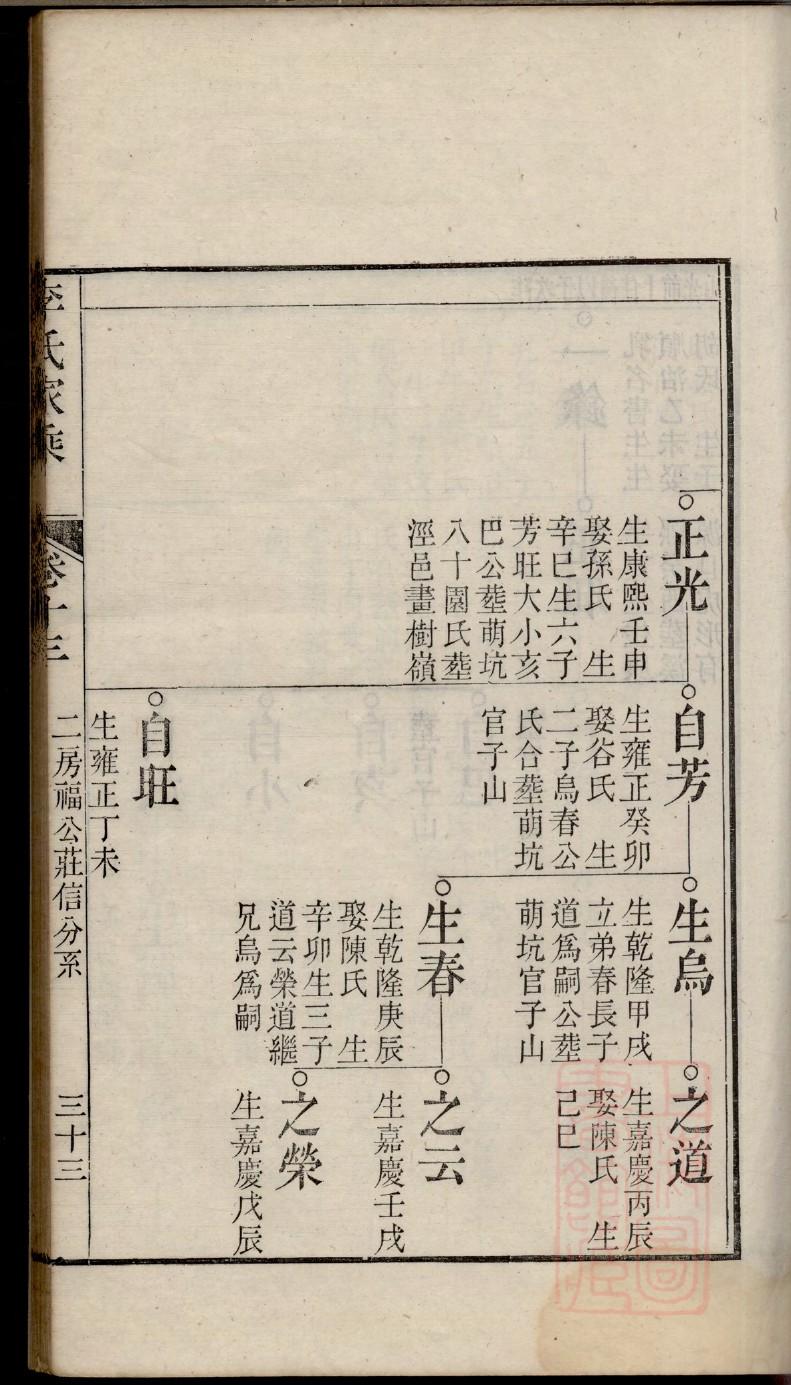 正光
生康熙壬申
娶孫氏 生
辛巳生六子
芳旺大小亥
巴公塟萌坑
八十園氏塟
涇邑畫樹嶺
自芳
生雍正癸卯
娶谷氏 生
二子烏春公
氏合塟萌坑
官子山
生烏
生乾隆甲戌
立弟春長子
道爲嗣公塟
萌坑官子山
之道
生嘉慶丙辰
娶陳氏 生
己巳
生春
生乾隆庚辰
娶陳氏 生
辛卯生三子
道云榮道繼
兄烏爲嗣
之云
生嘉慶壬戌
之榮
生嘉慶戊辰
自旺
生雍正丁未
李氏家乘
卷十三
二房福公莊信分系
三十三